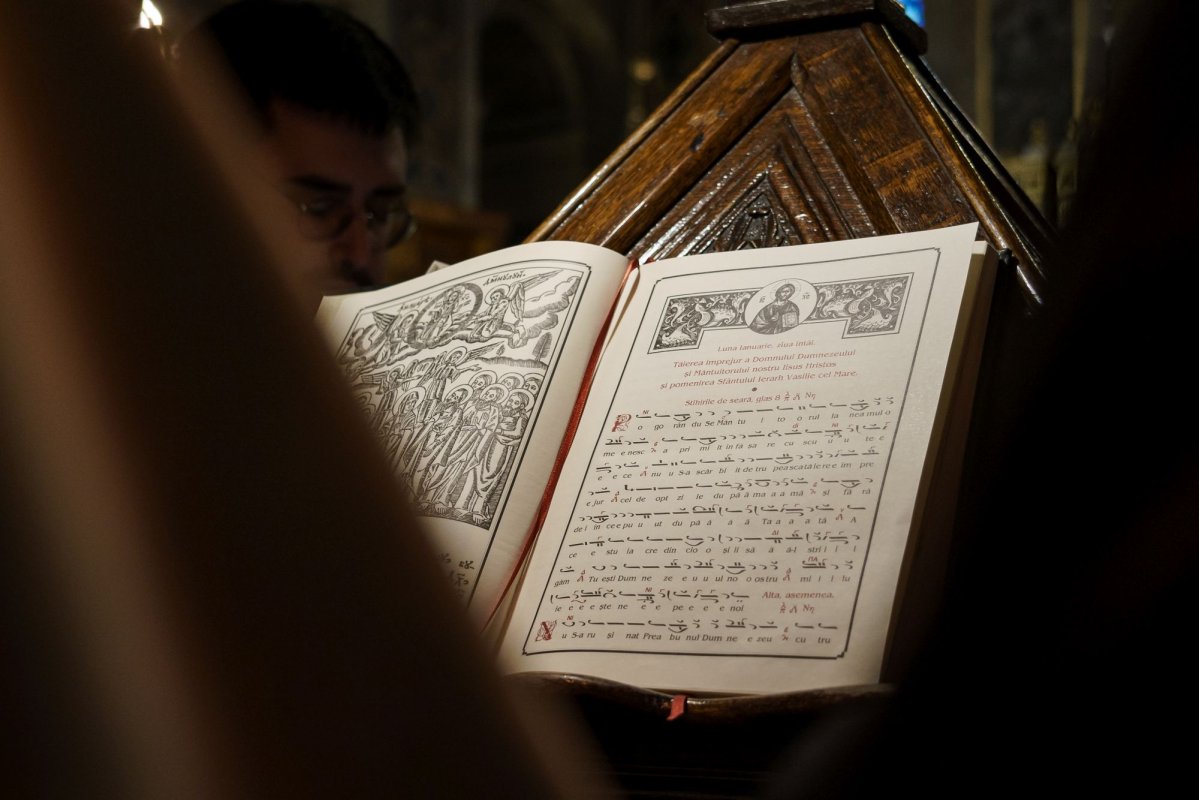 Luna Ianuarie, ziua întâi.
Tăierea împrejur a Domnului Dumnezeului
și Mântuitorului nostru Iisus Hristos
și pomenirea Sfântului Ierarh Vasilie cel Mare.
Stihirile de seară, glas 8 Νη
o go rân du Se Mân tu i to o rul la nea mul o
me e nesc a pri mi it în fă șa re cu scu u u te e
e e ce nu u S-a scâr bi it de tru pea sca tă ie re e îm pre
e jur cel de opt zi le du pă ă ma a a mă și fă ră
de î în ce e pu u ut du pă ă ă ă Ta a a a tă A
ce e stu ia cre din cio o și îi să ă ă-I stri i i i
găm Tu ești Dum ne ze e u u ul no o o stru mi i i lu
ie e e e ște ne e e pe e e e noi Alta, asemenea. Νη
u S-a ru și nat Prea bu nul Dum ne e zeu cu tru